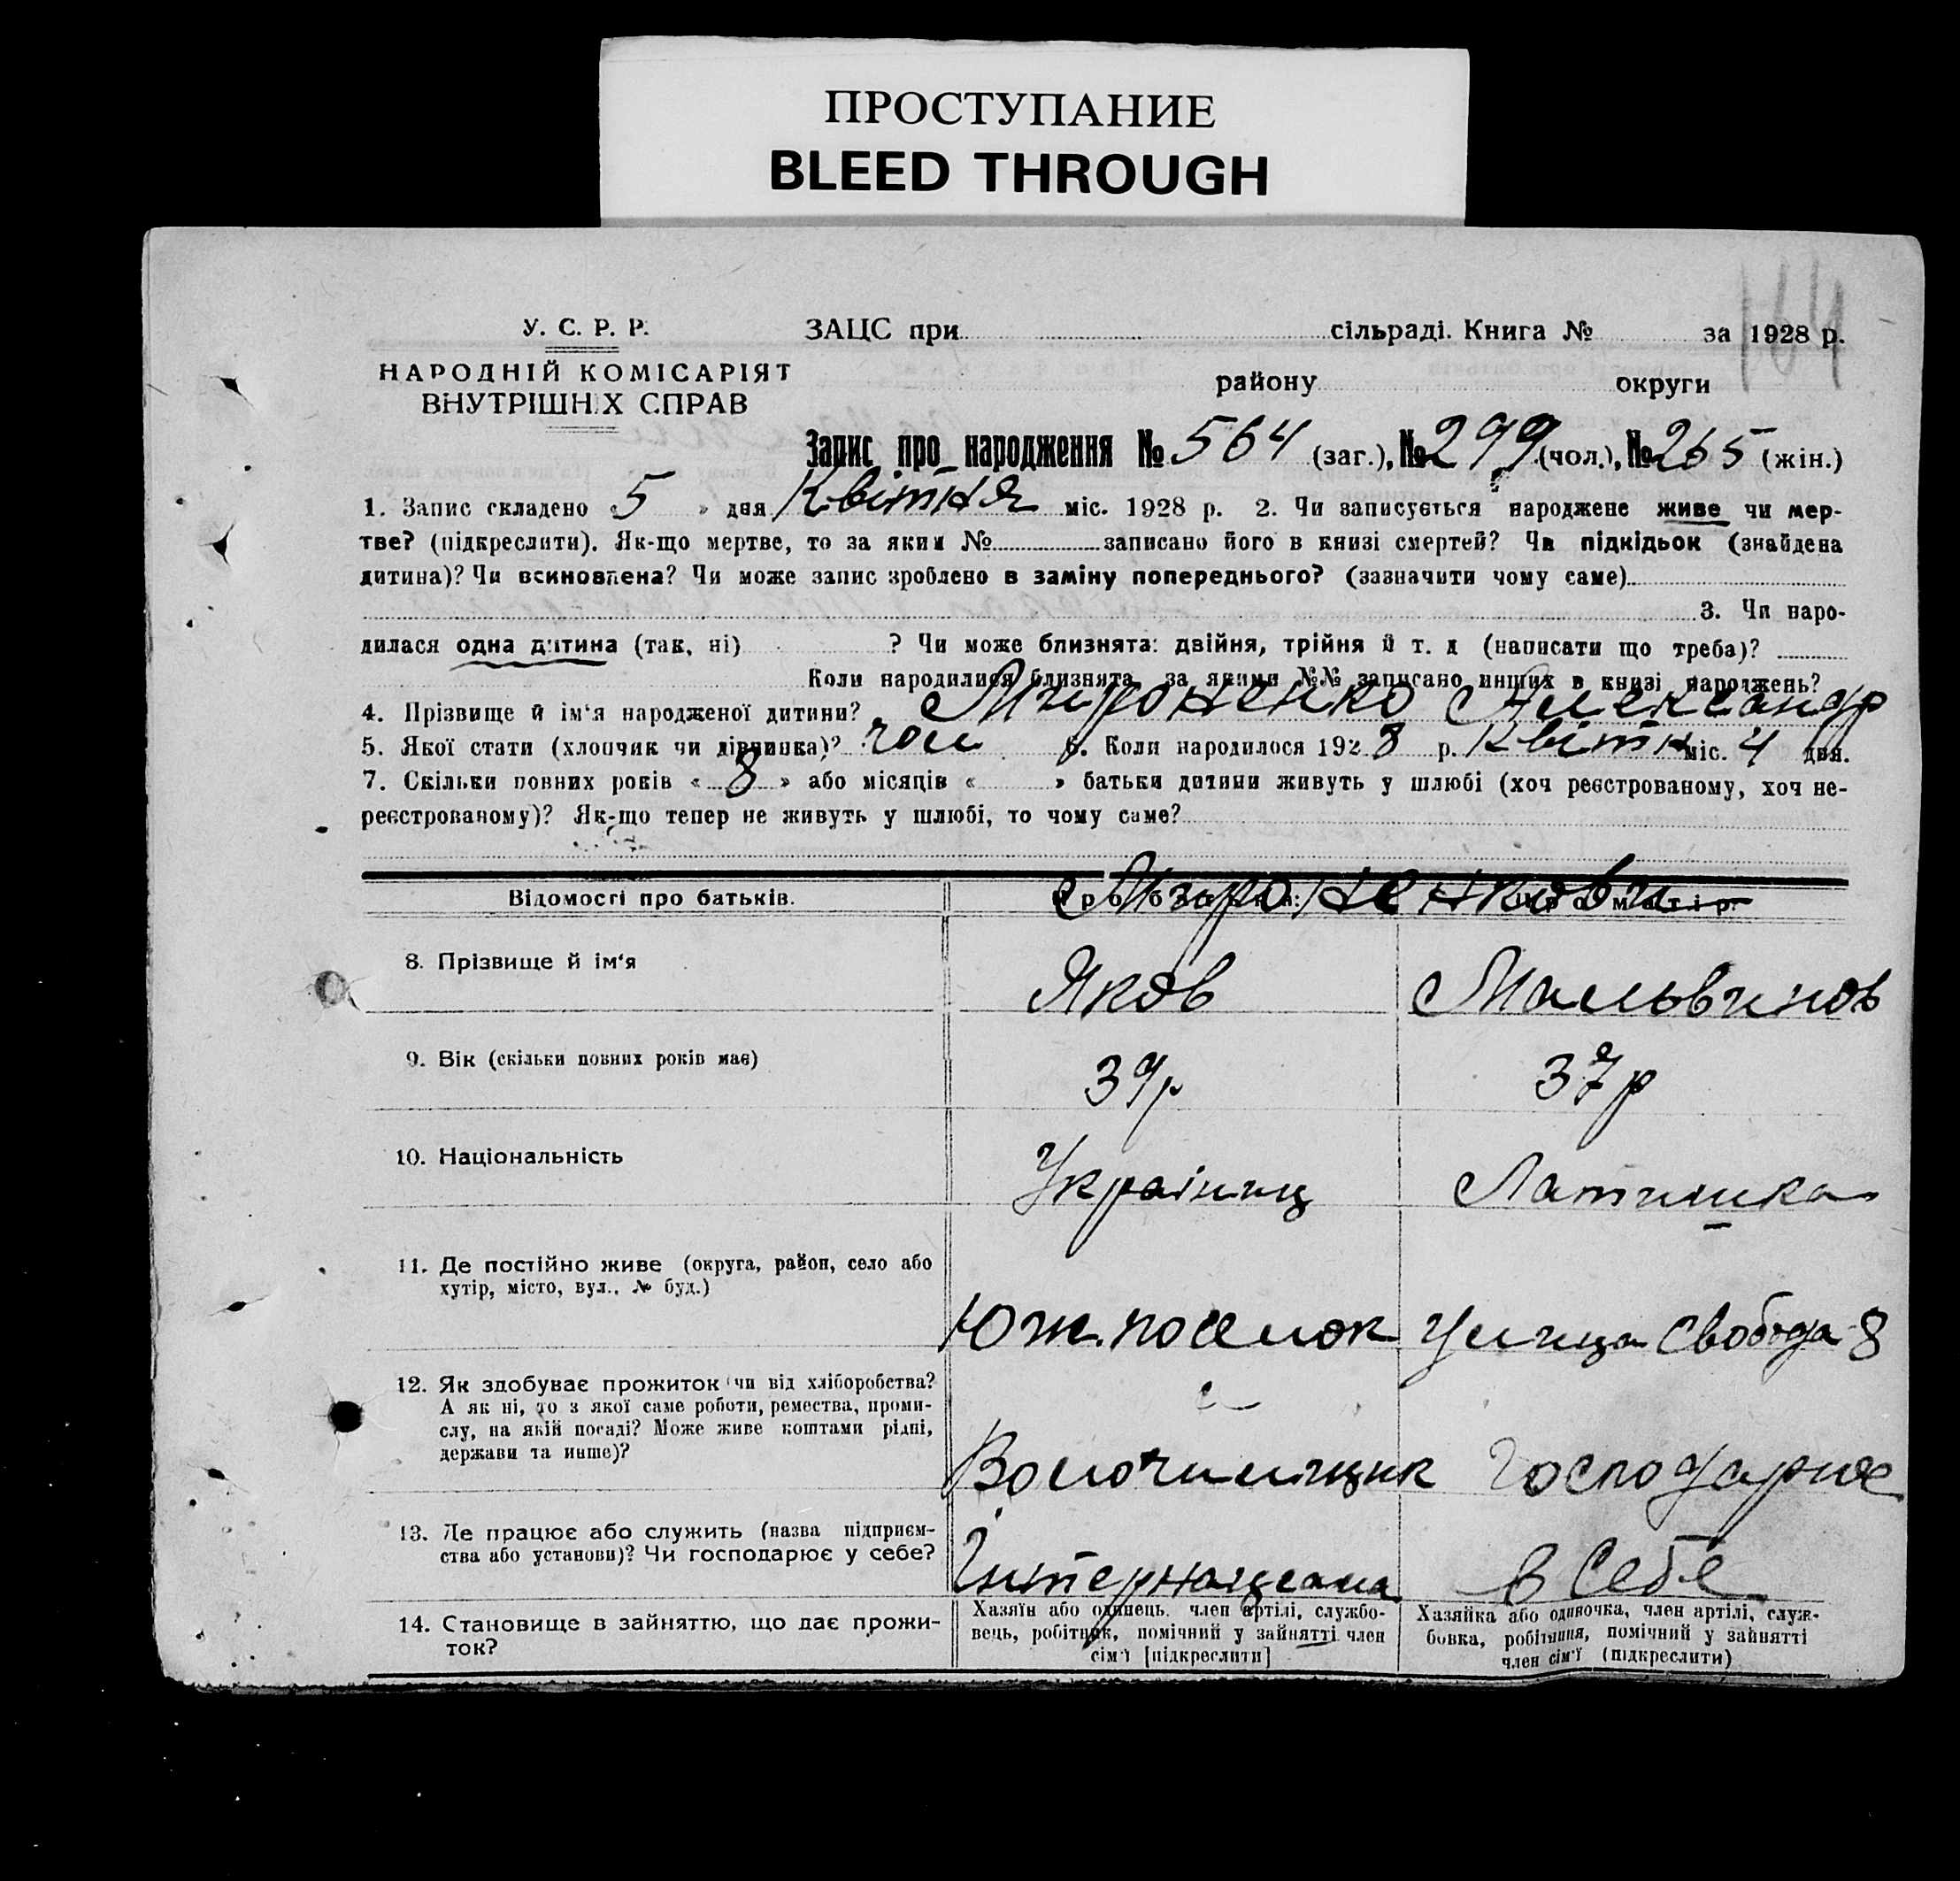 ПРОСТУПАНИЕ
BLEED THROUGH
У. С. Р. Р.
НАРОДНІЙ КОМІСАРІЯТ
ВНУТРІШНІХ СПРАВ
ЗАЦС при сільраді. Книга № за 1928 р.
району округи
Запис про народження № 564 (заг.), № 299 (чол.), № 265 (жін.)
1. Запис складено « 5 » дня Квітня міс. 1928 р. 2. Чи записується народжене живе чи мер-
тве? (підкреслити). Як-що мертве, то за яким № записано його в книзі смертей? Чи підкідьок (знайдена
дитина)? Чи всиновлена? Чи може запис зроблено в заміну попереднього? (зазначити чому саме)
3. Чи наро-
дилася одна дитина (так, ні) ? Чи може близнята: двійня, трійня й т. д (написати що треба)?
Коли народилися близнята, за якими №№ записано инших в книзі народжень?
4. Прізвище й ім'я народженої дитини? Мироненко Александр
5. Якої стати (хлопчик чи дівчинка)? чол 6. Коли народилося 1928 р. Квітн міс. 4 дня.
7. Скільки повних років « 8 » або місяців « » батьки дитини живуть у шлюбі (хоч реєстрованому, хоч не-
реєстрованому)? Як-що тепер не живуть у шлюбі, то чому саме?
Відомості про батьків. Про батька: Про матір:
Мироненкови
8. Прізвище й ім'я Яков
9. Вік (скільки повних років має) 39р 37р
10. Національність Украінец Латишка
11. Де постійно живе (округа, район, село або
хутір, місто, вул., № буд.)
Юж. поселок Улица Свобода 8
12. Як здобуває прожиток (чи від хліборобства?
А як ні, то з якої саме роботи, ремества, проми-
слу, на якій посаді? Може живе коштами рідні,
держави та инше)?
Волочильщик Господарює
13. Де працює або служить (назва підприєм-
ства або установи)? Чи господарює у себе?
в себе
14. Становище в зайняттю, що дає прожи-
ток?
Хазяїн або одинець, член артілі, службо-
вець, робітник, помічний у зайнятті член
сім'ї [підкреслити]
Хазяйка або одиночка, член артілі, служ-
бовка, робітниця, помічний у зайнятті
член сім'ї (підкреслити)